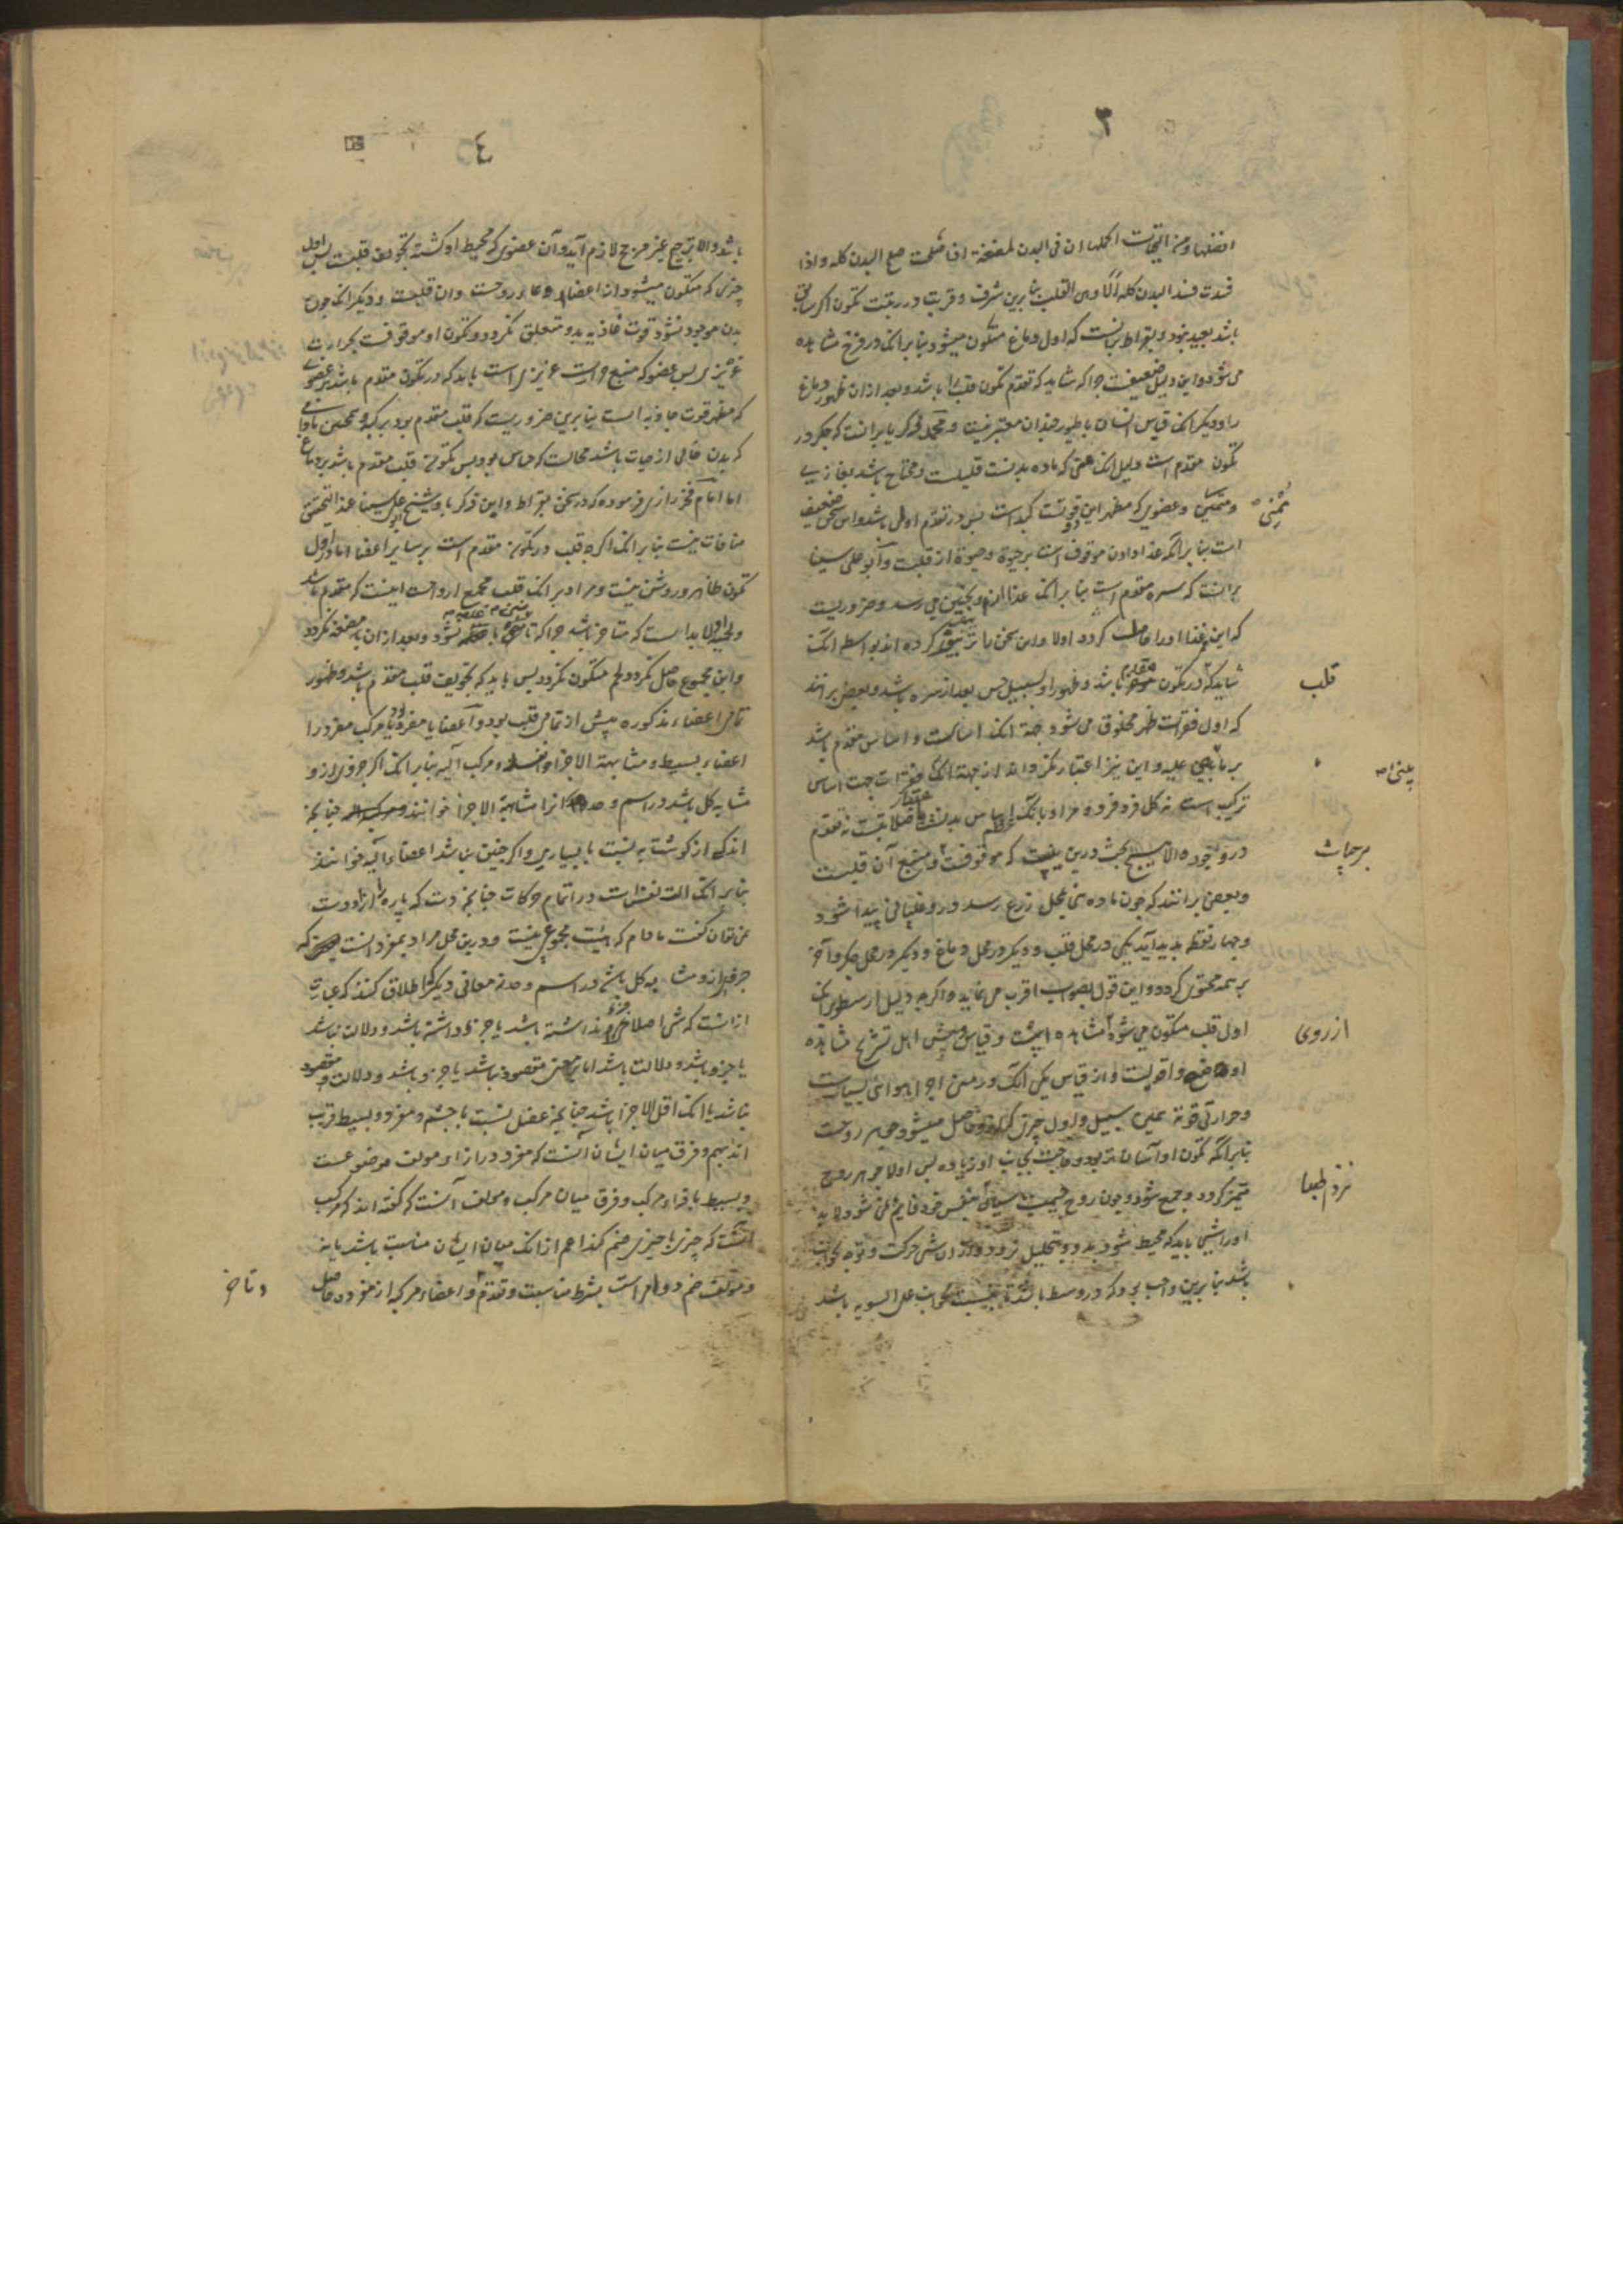 ۳
افضلها ومن التحیات اکملها ان فی البدن لمضغة اذا صلحت صلح البدن کله و اذا
فسدت فسد البدن کله الا وهی القلب بنا برین شرف و قربت در رتبت تکون اگر سابق
باشد بعید نبود و بقراط برانست که اول دماغ متکون میشود بنا برانک در فرخ مشاهده
می‌شود و این دلیل ضعیفست چرا که شاید که تقدم تکون قلب را باشد و بعد از ان ظهور دماغ
را و دیگر انک قیاس انسان با طیور چندان معتبر نیست و محمد زکریا برانست که جکر در
تکون مقدم است و دلیل انک منی که ماده بدنست قلیلست و محتاج باشد بغاذیه
و منمیه و عضوی که مظهر این قوتست کبد است پس در تقدم اولی باشد و این سخن ضعیف
است بنا برانکه غذا دادن موقوف است بر حیوة و حیوة از قلبست و ابو علی سینا
برانست که سره مقدم است بنا برانک غذا ازو بجنین می رسد و ضروریست
که این غذا او را حاصل کردد اولا و این سخن را کرده اند بواسطه انک
شاید که در تکون مقدم باشد و ظهور او بسبیل حس بعد از سره باشد و بعضی برانند
که اول فقرات ظهر مخلوق می شود بجهة انک اساست و اساس مقدم باشد
بر ما بنی علیه و این نیز اعتبار نکرده اند از جهة انک فقرات جهت اساس
ترکیب است نه کل فرد فرد و مراد بانک اساس بدنست باعتبار صلابتست نه تقدم
در وجود و الا هیچ بحث درین نیست که موقوفست و منبع آن قلبست
و بعضی برانند که چون ماده منی بمحل زرع رسد درو غلیانی پیدا شود
و چهار نقطه پدید آید یکی در محل قلب و دیگر در محل دماغ و دیگر در محل جکر و آخر
بر همه محتوی کردد و این قول بصواب اقرب می نماید و اگرچه دلیل ارسطو برانک
اول قلب متکون می شود مشاهده است و قیاس و پیش اهل تشریح مشاهده
اوضح و اقویست و از قیاس یکی آنک در منی اجزا هوائی بسیارست
و حرارتی قوی بهمین سبیل و اول چیزی که ازو حاصل میشود جوهر روحست
بنا برانکه تکون او آسان‌تر بود و حاجت بجانب او زیاده پس اولا جوهر روح
متمیز کردد و جمع شود و چون روح جسمیست سیال بنفس خود قایم نمی شود و لابد
او را شیئی باید که محیط شود بدو و بتحلیل نرود و از ان شی حرکت و توجه بجوانب
باشد بنا برین واجب بود که در وسط باشد تا نسبت بجوانب علی السویه باشد
قلب
ازروی
٤
باشد و الا ترجیح غیر مرجح لازم آید و آن عضوی که محیط او کشته بتجویف قلبست پس اول
چیزی که متکون میشود از اعضا وعاء روحست و ان قلبست و دیگر انک چون
بدن موجود نشود قوت غاذیه بدو متعلق نکردد و تکون او موقوفست بحرارت
غریزی پس عضو که منبع حرارت غریزی است باید که در تکون مقدم باشد بر عضوی
که مظهر قوت جاذبه است بنا برین ضروریست که قلب مقدم بود بر کبد و همچنین مادام
که بدن خالی از حیات باشد محالست که حساس بود پس تکون قلب مقدم باشد بر دماغ
اما امام فخر رازی فرموده که در سخن بقراط و ابن زکریا و شیخ ابو علی سینا عند التحقیق
منافات نیست بنا برانک اگرچه قلب در تکون مقدم است بر سایر اعضا اما در اول
تکون ظاهر و روشن نیست و مراد برانک قلب مجمع ارواحست اینست که مقدم باشد
و لحم لابد است که متاخر باشد چرا که تا نشود و بعد از ان مضغه نکردد
و این مجموع حاصل نکردد لحم متکون نکردد پس باید که تجویف قلب مقدم باشد و ظهور
تمامی اعضاء مذکوره پیش از تمامی قلب بود و اعضا یا مفردند یا مرکب مفرد را
اعضاء بسیطه و متشابهة الاجزا خوانند و مرکب آلیه بنا برانک اگر جزوی ازو
مشابه کل باشد در اسم و حد انرا متشابهة الاجزا خوانند چنانچه
اندک از کوشت به نسبت با بسیاری و اگر چنین نباشد اعضاء آلیه خوانند
بنا برانک الت نفس است در اتمام حرکات چنانچه دست که پاره از دست
نمی توان کفت مادام که هیئت مجموعی نیست و درین محل مراد بمفرد انست که
جزو ازو مشابه کل باشد در اسم و حد نه معانی دیگر که اطلاق کنند که عبارت
ازانست که شی اصلا جزو نداشته باشد یا جزء داشته باشد و دلالت نباشد
یا جزو باشد و دلالت باشد اما معنی مقصود نباشد یا جزو باشد و دلالت و مقصود
نباشد یا انک اقل الاجزا باشد چنانچه عضل نسبت با چشم و مفرد و بسیط قریب
اند بهم و فرق میان ایشان آنست که مفرد در ازاء مولف موضوعست
و بسیط بازاء مرکب و فرق میان مرکب و مولف آنست که کفته اند که مرکب
آنست که چیزی با چیزی ضم کنند اعم از انک میان ایشان مناسبت باشد یا نه
و مولف ضم دو امر است بشرط مناسبت و تقدم و اعضاء مرکبه از مفرده حاصل
و تاخر